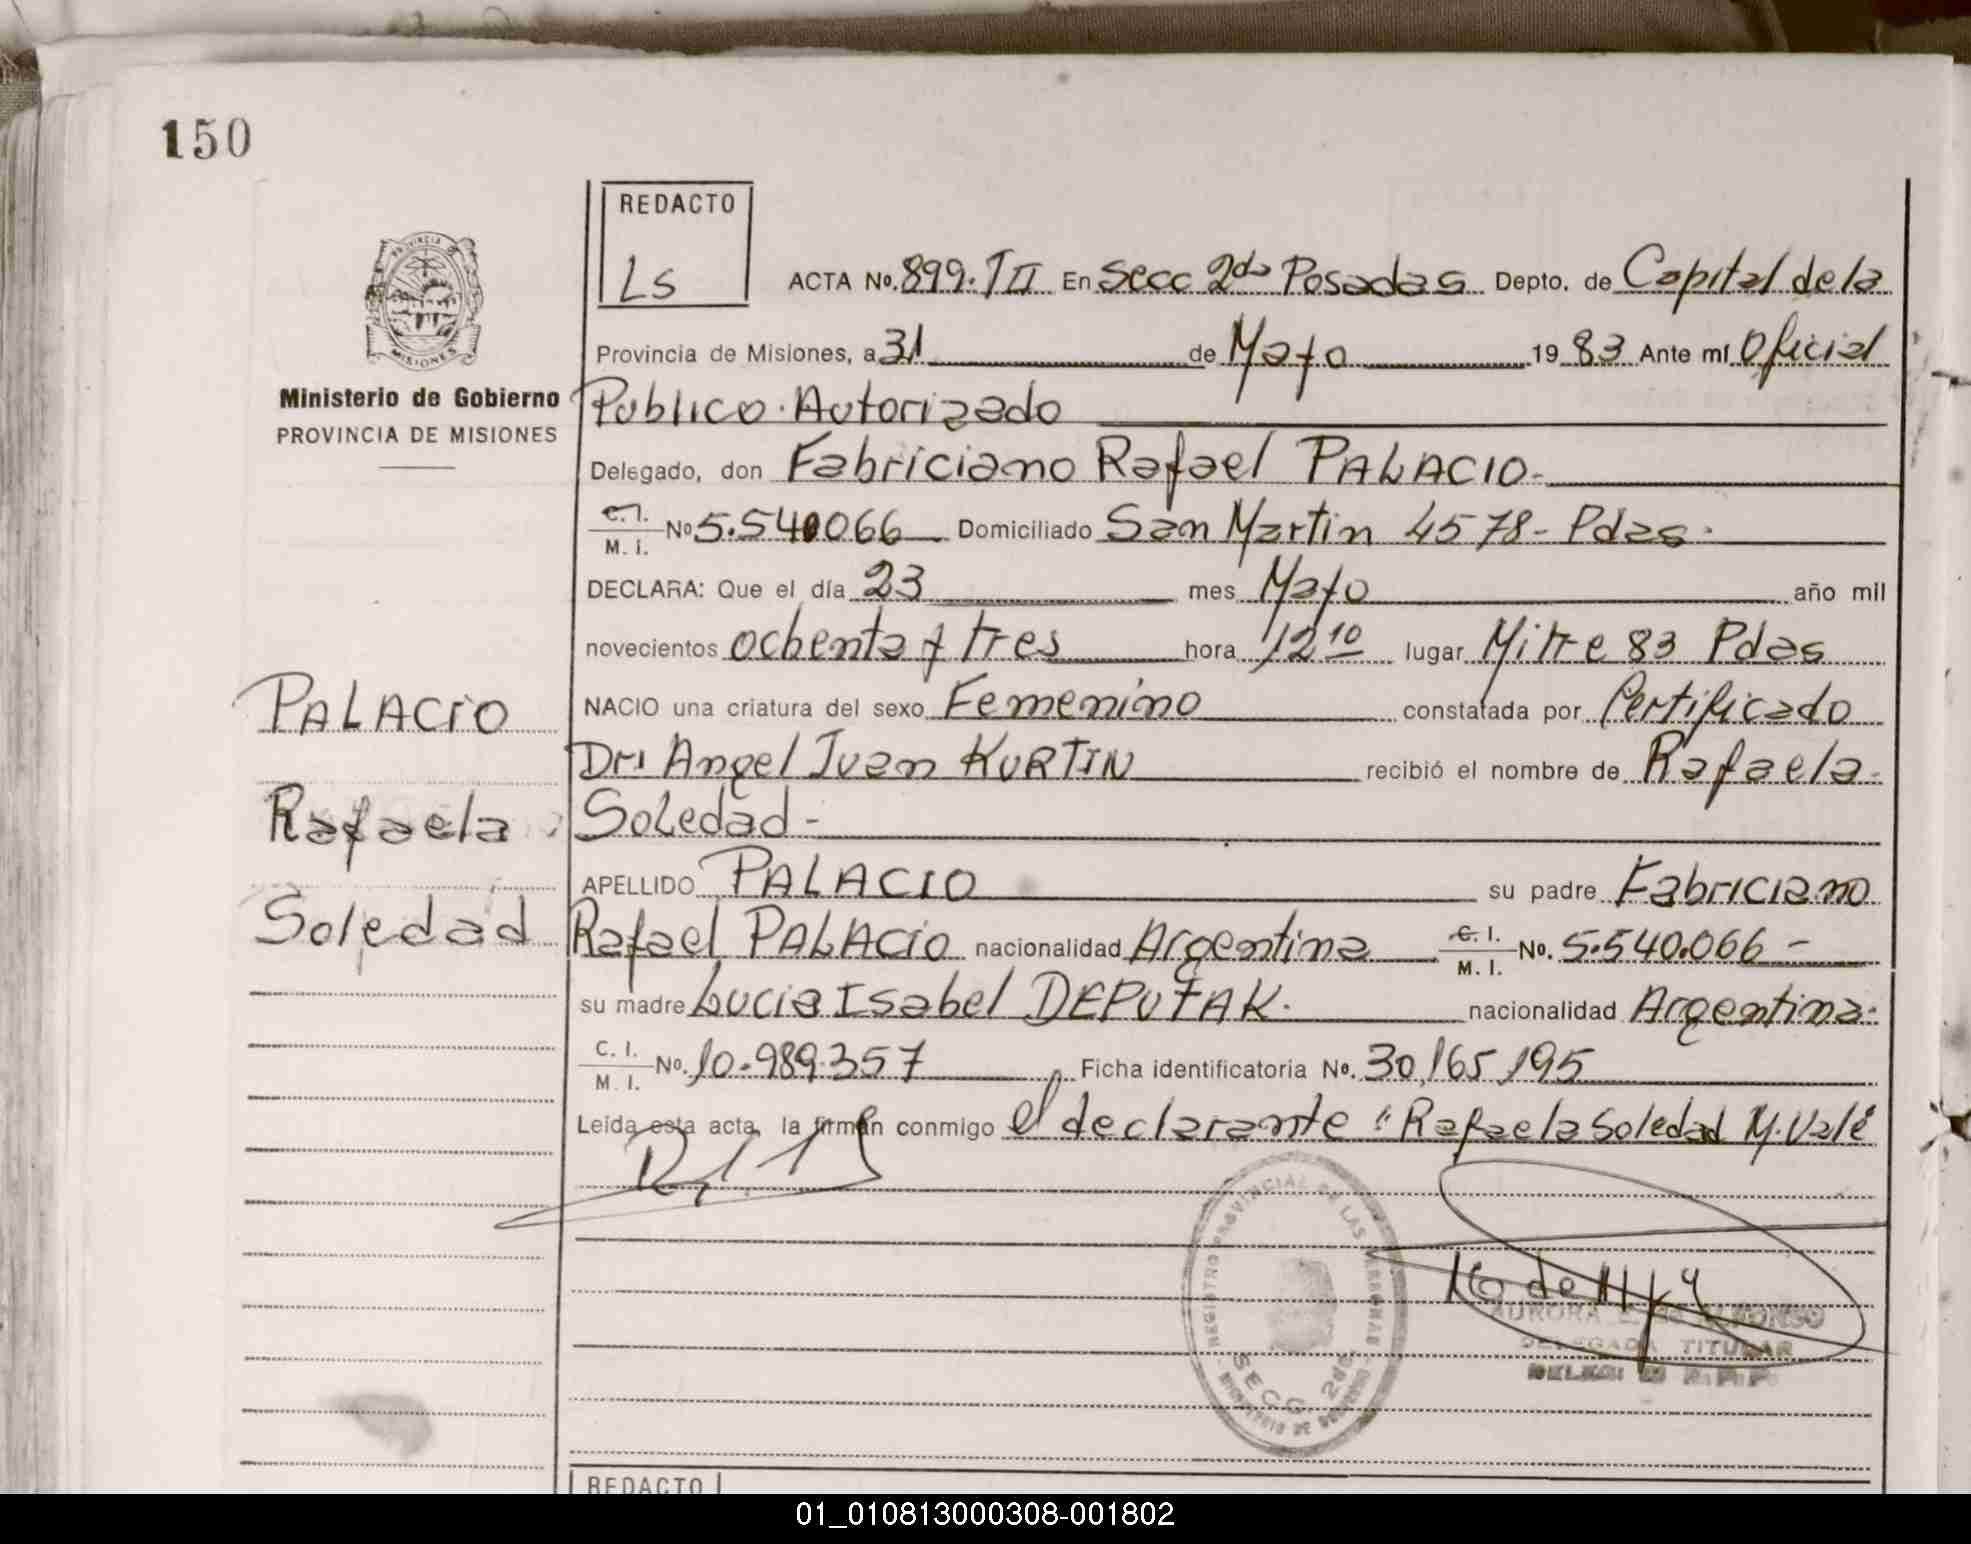 150
REDACTO
Ls
PROVINCIA
MISIONES
Ministerio de Gobierno
PROVINCIA DE MISIONES
ACTA No. 899. TII En Secc 2da Posadas Depto. de Capital de la
Provincia de Misiones, a 31 de Mayo 1983 Ante mí Oficial
Publico Autorizado
Delegado, don Fabriciano Rafael PALACIO-
C.I. M.I. No 5.540066 Domiciliado San Martin 4578- Pdas.
DECLARA: Que el día 23 mes Mayo año mil
novecientos ochenta y tres hora 12 10 lugar Mitre 83 Pdas
NACIO una criatura del sexo Femenino constatada por Certificado
Dr: Angel Juan KURTIN recibió el nombre de Rafaela-
Soledad-
APELLIDO PALACIO su padre Fabriciano
Rafael PALACIO nacionalidad Argentina C.I. M.I. No. 5.540.066-
su madre Lucia Isabel DEPUTAK. nacionalidad Argentina.
C.I. M.I. No. 10.989.357 Ficha identificatoria No. 30,165,195
Leída esta acta, la firman conmigo el declarante "Rafaela Soledad M. Vale
PALACIO
Rafaela
Soledad
REGISTRO PROVINCIAL DE LAS PERSONAS
SECC. 2da.
MINISTERIO DE GOBIERNO
AURORA ALFONSO
DELEGADA TITULAR
REDACTO
01_010813000308-001802